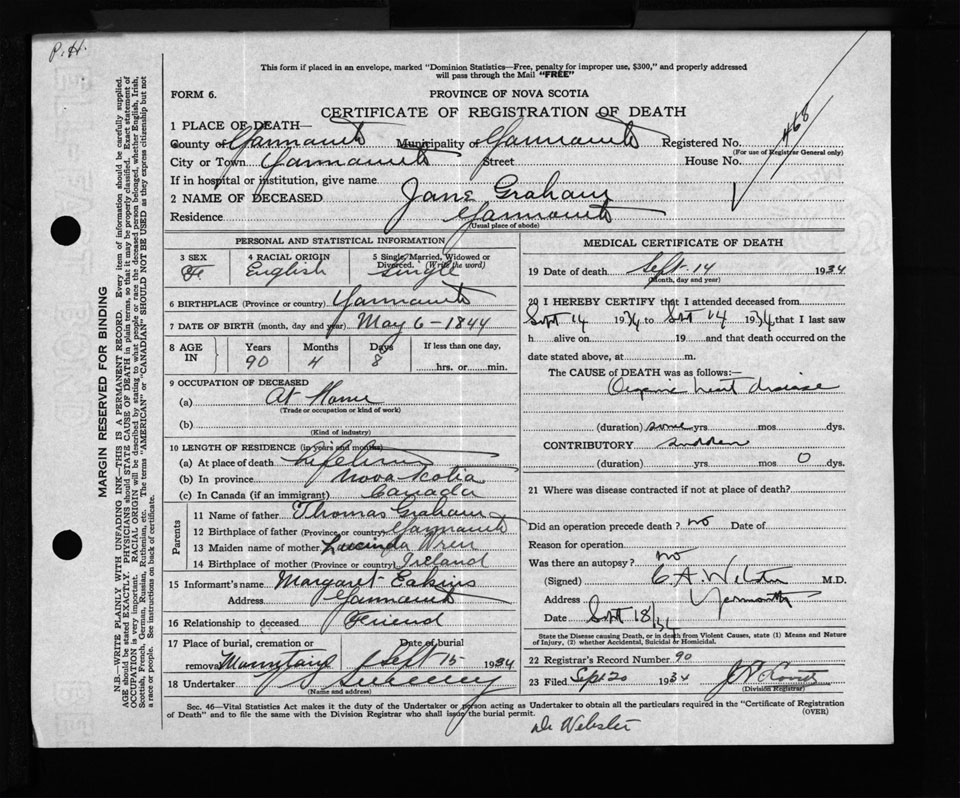 P. H.
This form if placed in an envelope, marked "Dominion Statistics—Free, penalty for improper use, $300," and properly addressed
will pass through the Mail "FREE"
FORM 6.
PROVINCE OF NOVA SCOTIA
CERTIFICATE OF REGISTRATION OF DEATH
468
1 PLACE OF DEATH—
County of Yarmouth Municipality of Yarmouth Registered No.
(For use of Registrar General only)
City or Town Yarmouth Street House No.
If in hospital or institution, give name
2 NAME OF DECEASED Jane Graham
Residence Yarmouth
(Usual place of abode)
PERSONAL AND STATISTICAL INFORMATION
3 SEX Fe 4 RACIAL ORIGIN English 5 Single, Married, Widowed or Divorced. (Write the word) Single
6 BIRTHPLACE (Province or country) Yarmouth
7 DATE OF BIRTH (month, day and year) May 6-1844
8 AGE IN Years Months Days If less than one day,
90 4 8 hrs. or min.
9 OCCUPATION OF DECEASED
(a) At Home
(Trade or occupation or kind of work)
(b)
(Kind of industry)
10 LENGTH OF RESIDENCE (in years and months)
(a) At place of death Lifetime
(b) In province Nova Scotia
(c) In Canada (if an immigrant) Canada
Parents
11 Name of father Thomas Graham
12 Birthplace of father (Province or country) Yarmouth
13 Maiden name of mother Lucinda Wren
14 Birthplace of mother (Province or country) Ireland
15 Informant's name Margaret Eakins
Address Yarmouth
16 Relationship to deceased Friend
17 Place of burial, cremation or Date of burial
removal Sept 15- 1934
18 Undertaker Sweeney
(Name and address)
MEDICAL CERTIFICATE OF DEATH
19 Date of death Sept. 14 1934
(Month, day and year)
20 I HEREBY CERTIFY that I attended deceased from
Sept 14 1934 to Sept 14 1934 that I last saw
h alive on 19 and that death occurred on the
date stated above, at m.
The CAUSE of DEATH was as follows:—
Organic heart disease
(duration) some yrs. mos. dys.
CONTRIBUTORY sudden
(duration) yrs. mos 0 dys.
21 Where was disease contracted if not at place of death?
Did an operation precede death? no Date of
Reason for operation
Was there an autopsy? no
(Signed) C. A. Webster M.D.
Address Yarmouth
Date Sept 18/34
State the Disease causing Death, or in death from Violent Causes, state (1) Means and Nature
of Injury, (2) whether Accidental, Suicidal or Homicidal.
22 Registrar's Record Number 90
23 Filed Sept 20 1934
(Division Registrar)
Sec. 46—Vital Statistics Act makes it the duty of the Undertaker or person acting as Undertaker to obtain all the particulars required in the "Certificate of Registration
of Death" and to file the same with the Division Registrar who shall issue the burial permit. (OVER)
Dr Webster
MARGIN RESERVED FOR BINDING
N.B.—WRITE PLAINLY WITH UNFADING INK—THIS IS A PERMANENT RECORD. Every item of information should be carefully supplied.
AGE should be stated EXACTLY. PHYSICIANS should STATE CAUSE OF DEATH in plain terms, so that it may be properly classified. Exact statement of
OCCUPATION is very important. RACIAL ORIGIN will be described by stating to what people or race the deceased person belonged, whether English, Irish,
Scottish, French, German, Russian, Ruthenian, etc. The terms "AMERICAN" or "CANADIAN" SHOULD NOT BE USED as they express citizenship but not
a race or people. See instructions on back of certificate.